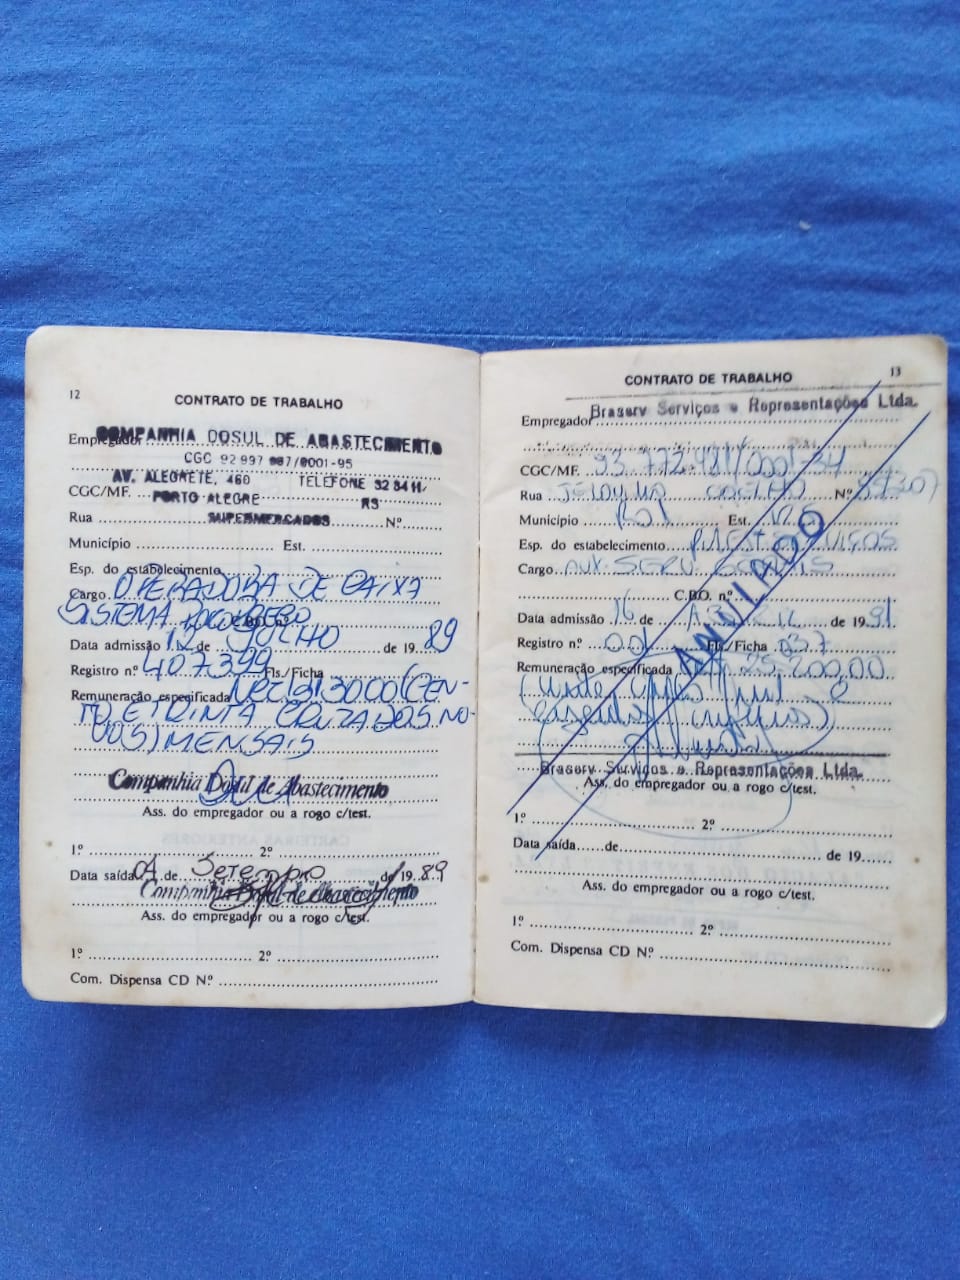 12
CONTRATO DE TRABALHO
Empregador COMPANHIA DOSUL DE ABASTECIMENTO
CGC 92 997 987/0001-95
AV. ALEGRETE, 460 TELEFONE 32 8411
CGC/MF. PORTO ALEGRE RS
Rua SUPERMERCADOS Nº
Município Est.
Esp. do estabelecimento
Cargo OPERADORA DE CAIXA
SISTEMA
Data admissão 12 de JULHO de 19 89
Registro n.º 407.399 Fls./Ficha
Remuneração especificada (CEN-
TO E TRINTA CRUZADOS NO-
VOS) MENSAIS
Companhia Dosul de Abastecimento
Ass. do empregador ou a rogo c/test.
1.º 2.º
Data saída 04 de Setembro de 19 89
Companhia Dosul de Abastecimento
Ass. do empregador ou a rogo c/test.
1.º 2.º
Com. Dispensa CD N.º
13
CONTRATO DE TRABALHO
Empregador Braserv Serviços e Representações Ltda.
CGC/MF. 93.772.481/0001-34
Rua COELHO N.º
Município POA Est. RS
Esp. do estabelecimento PREST. SERVIÇOS
Cargo AUX. SERV. GERAIS
C.B.O. n.º
Data admissão 16 de ABRIL de 19 91
Registro n.º 001 Fls./Ficha 037
Remuneração especificada 25.200,00
ANULADO
Braserv Serviços e Representações Ltda.
Ass. do empregador ou a rogo c/test.
1.º 2.º
Data saída de de 19
Ass. do empregador ou a rogo c/test.
1.º 2.º
Com. Dispensa CD N.º